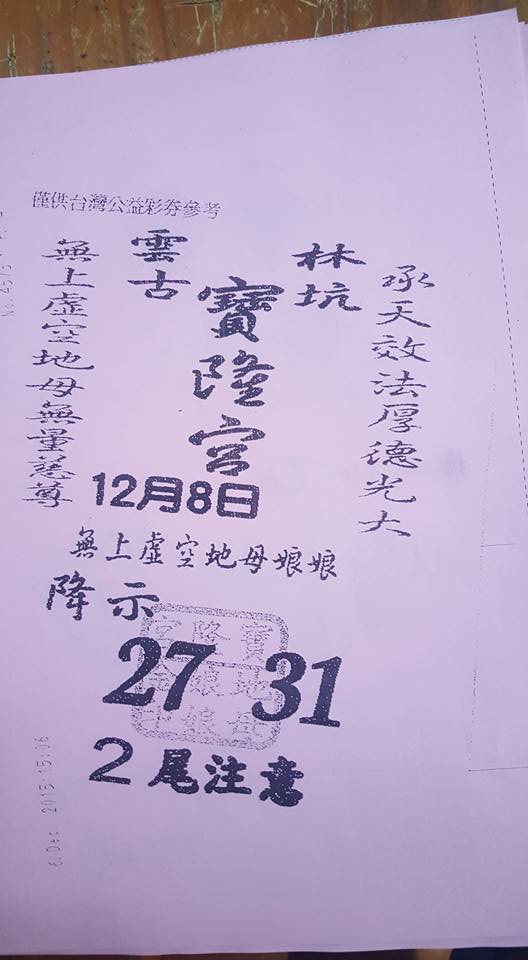 僅供台灣公益彩券參考
雲林
古坑
寶隆宮
承天效法厚德光大
無上虛空地母無量慈尊
12月8日
無上虛空地母娘娘
降示
27 31
2尾注意
6.Dec 2015 15:06